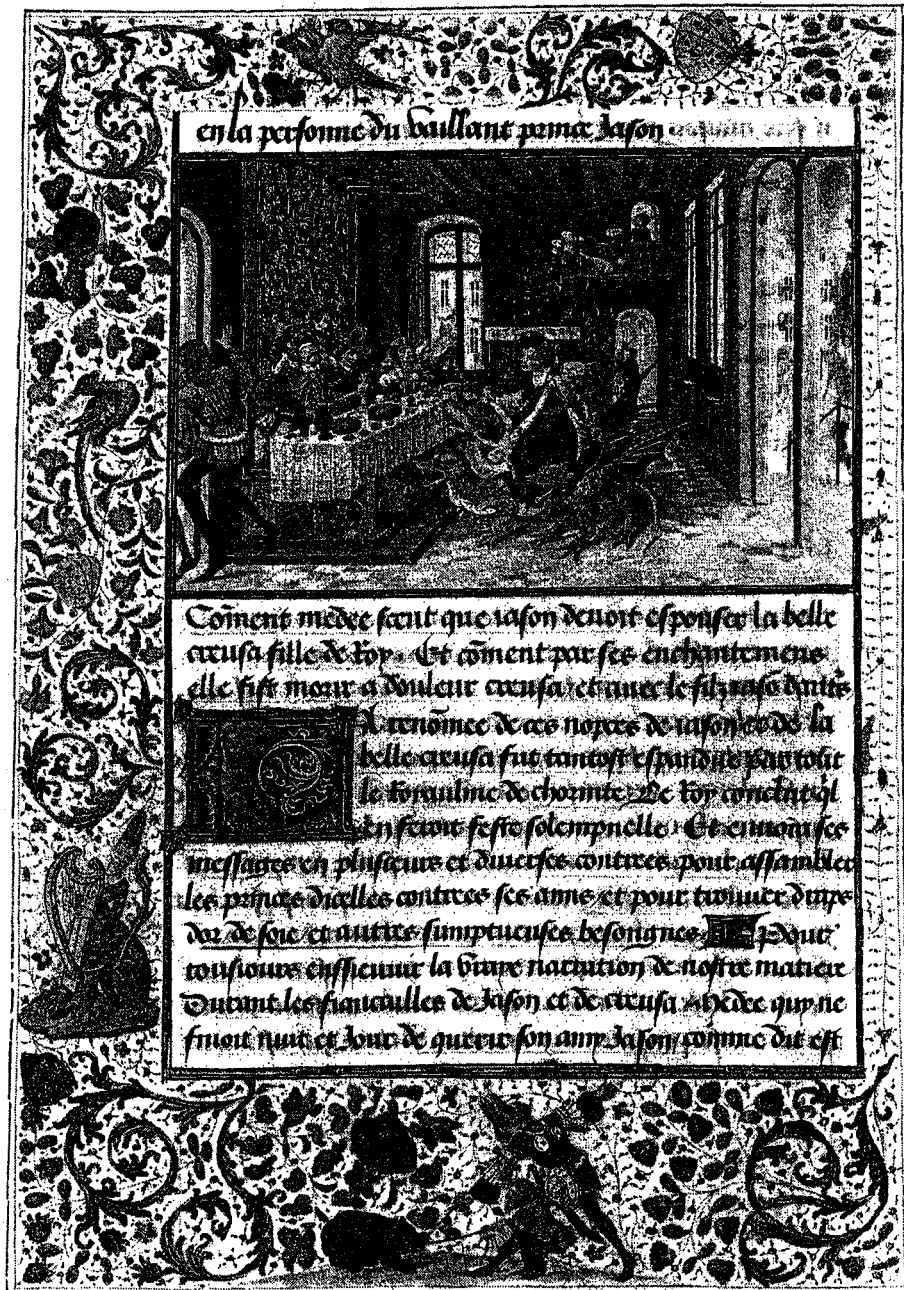 en la personne du vaillant prince Jason
Cõment medee sceut que iason deuoit espouser la belle
creusa fille de Roy. Et cõment par ses enchantemens
elle fist mourir a douleur creusa et auec le filz iasõ dautres
La renõmee de ces nopces de iason et de la
belle creusa fut tantost espandue par tout
le Royaulme de chorinte. Le Roy conclut ql
en feroit feste solempnelle. Et enuoia ses
messages en plusieurs et diuerses contrees pour assambler
les princes dicelles contrees ses amis et pour trouuer draps
dor de soie et autres sumptueuses besongnes Pour
tousiours enssieuuir la vraye narration de nostre matiere
Durant les fiancailles de Jason et de creusa. Medee quy ne
finoit nuit et Jour de querir son amy Jason cõme dit est